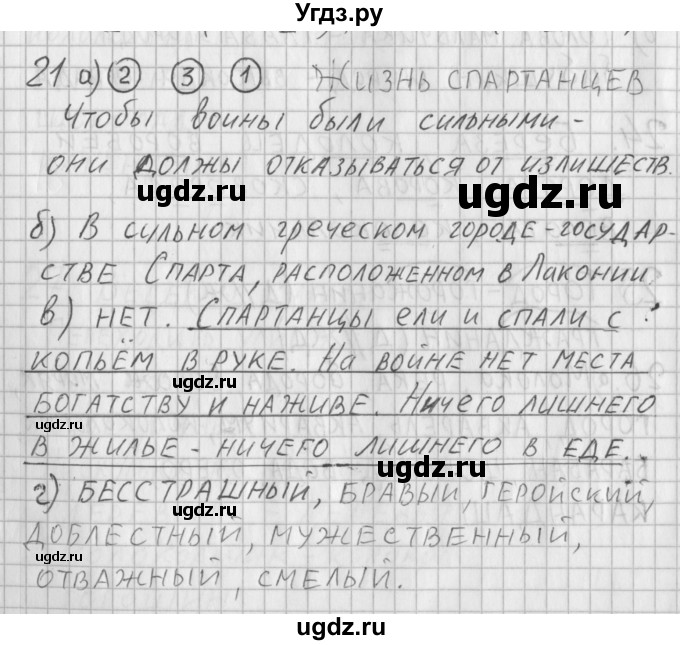 Угдз.ру
21 а) 2 3 1 Жизнь спартанцев
Чтобы воины были сильными -
они должы отказываться от излишеств.
ugdz.ru
ugdz.ru
б) В сильном греческом городе-государ-
стве Спарта, расположенном в Лаконии.
в) нет. Спартанцы ели и спали с
копьём в руке. На войне нет места
ugdz.ru
богатству и наживе. Ничего лишнего
в жилье - ничего лишнего в еде.
ugdz.ru
г) Бесстрашный, бравый, геройский,
ugdz.ru
доблестный, мужественный,
ugdz.ru
отважный, смелый.
ugdz.ru